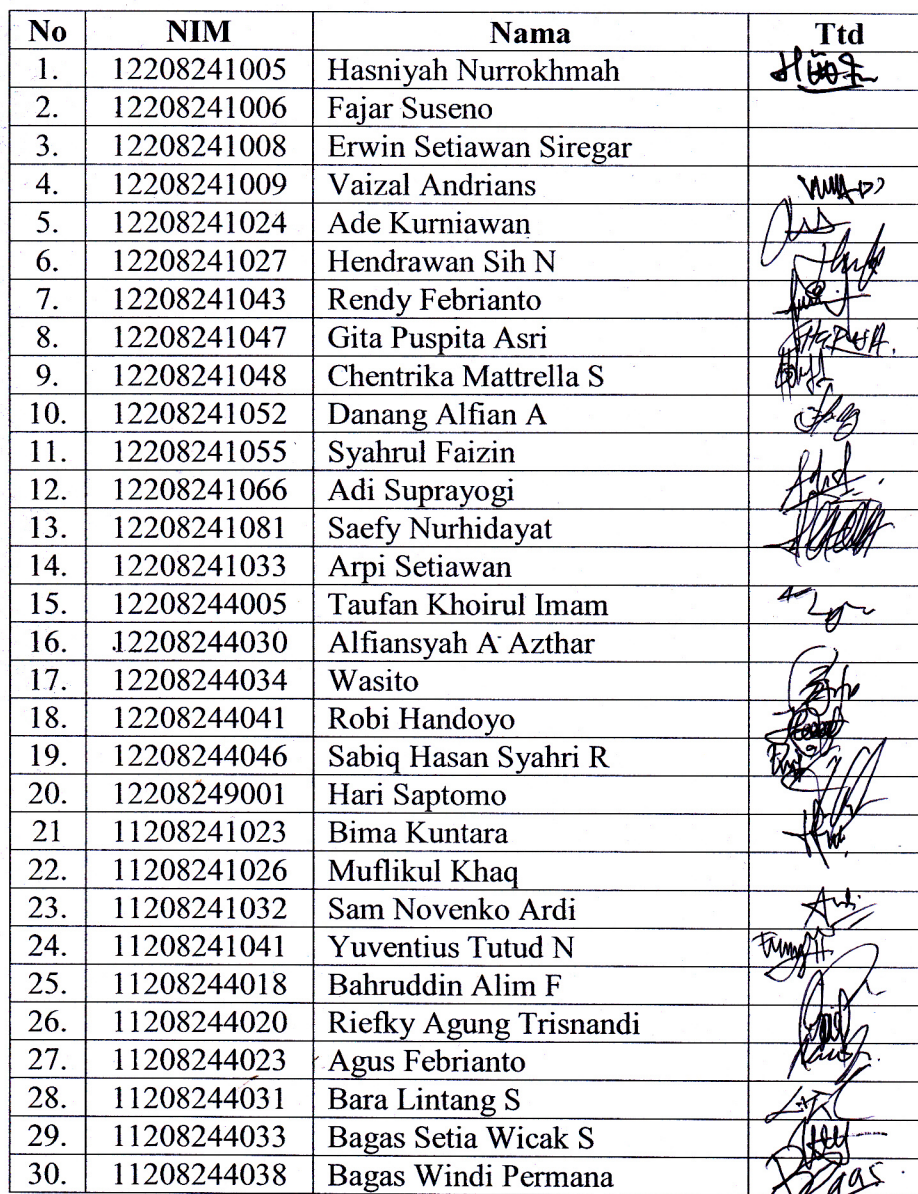 No NIM Nama Ttd
1. 12208241005 Hasniyah Nurrokhmah
2. 12208241006 Fajar Suseno
3. 12208241008 Erwin Setiawan Siregar
4. 12208241009 Vaizal Andrians
5. 12208241024 Ade Kurniawan
6. 12208241027 Hendrawan Sih N
7. 12208241043 Rendy Febrianto
8. 12208241047 Gita Puspita Asri
9. 12208241048 Chentrika Mattrella S
10. 12208241052 Danang Alfian A
11. 12208241055 Syahrul Faizin
12. 12208241066 Adi Suprayogi
13. 12208241081 Saefy Nurhidayat
14. 12208241033 Arpi Setiawan
15. 12208244005 Taufan Khoirul Imam
16. 12208244030 Alfiansyah A Azthar
17. 12208244034 Wasito
18. 12208244041 Robi Handoyo
19. 12208244046 Sabiq Hasan Syahri R
20. 12208249001 Hari Saptomo
21 11208241023 Bima Kuntara
22. 11208241026 Muflikul Khaq
23. 11208241032 Sam Novenko Ardi Ardi
24. 11208241041 Yuventius Tutud N
25. 11208244018 Bahruddin Alim F
26. 11208244020 Riefky Agung Trisnandi
27. 11208244023 Agus Febrianto
28. 11208244031 Bara Lintang S
29. 11208244033 Bagas Setia Wicak S
30. 11208244038 Bagas Windi Permana Bagas